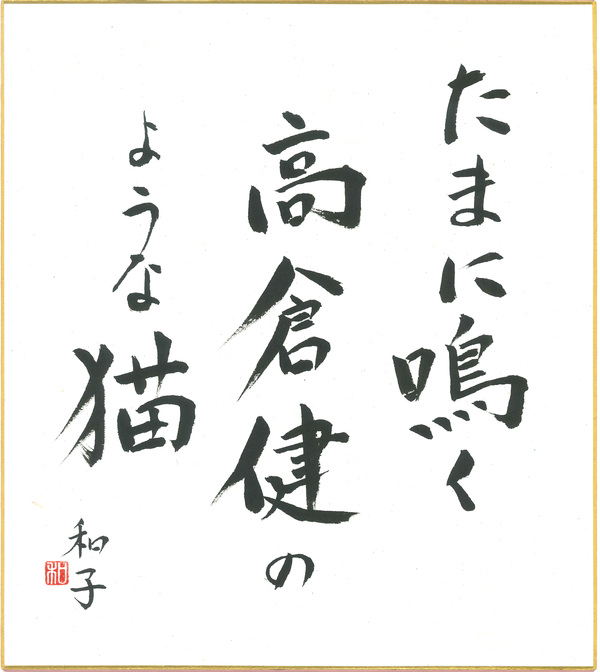 たまに鳴く
高倉健の
ような猫
和子
和